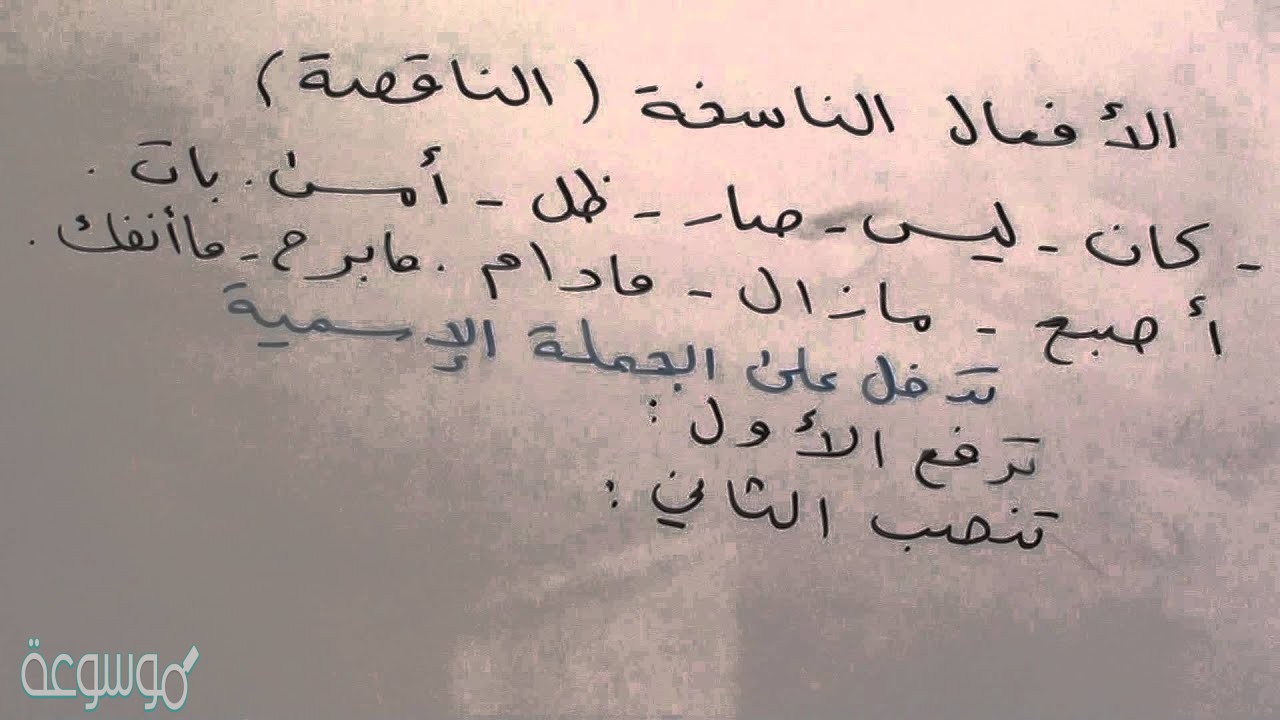 الأفعال الناسخة (الناقصة)
- كان - ليس - صار - ظل - أمسى. بات.
أصبح - مازال - مادام. مابرح - ماأنفك.
تدخل على الجملة الإسمية
ترفع الأول:
تنصب الثاني:
موسوعة